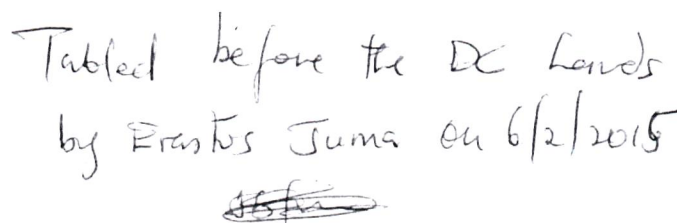 Tabled before the DC Lands
by Erastus Juma on 6/2/2015